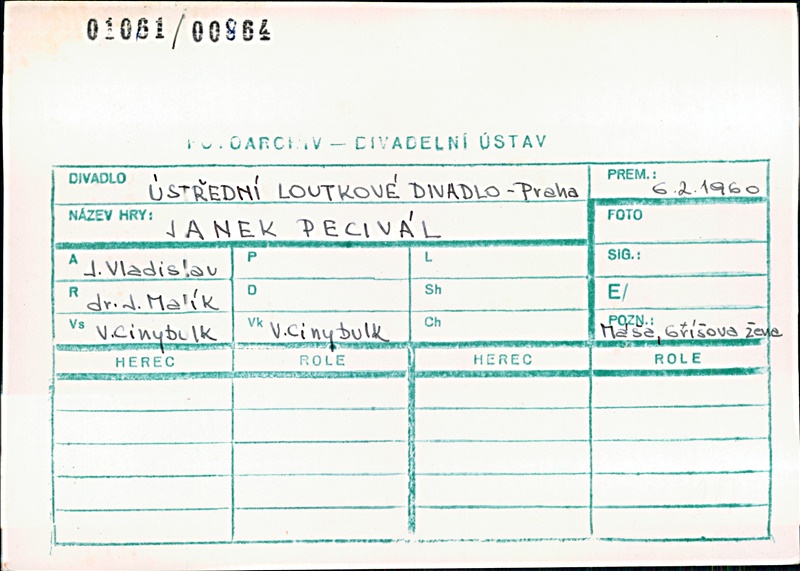 01061/00864
FOTOARCHIV – DIVADELNÍ ÚSTAV
DIVADLO ÚSTŘEDNÍ LOUTKOVÉ DIVADLO – Praha
PREM.: 6.2.1960
NÁZEV HRY: JANEK PECIVÁL
FOTO
A J. Vladislav
P
L
SIG.:
R dr. J. Malík
D
Sh
E/
Vs V. Cinybulk
Vk V. Cinybulk
Ch
POZN.: Máša, Gríšova žena
HEREC ROLE HEREC ROLE